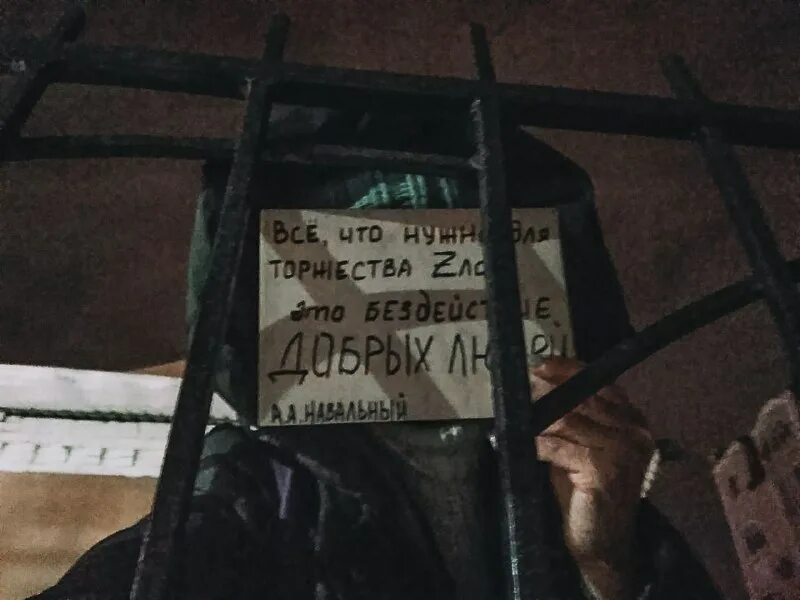 ВСЁ, ЧТО НУЖНО ДЛЯ
ТОРЖЕСТВА ZЛА
ЭТО БЕЗДЕЙСТВИЕ
ДОБРЫХ ЛЮДЕЙ
А.А. НАВАЛЬНЫЙ